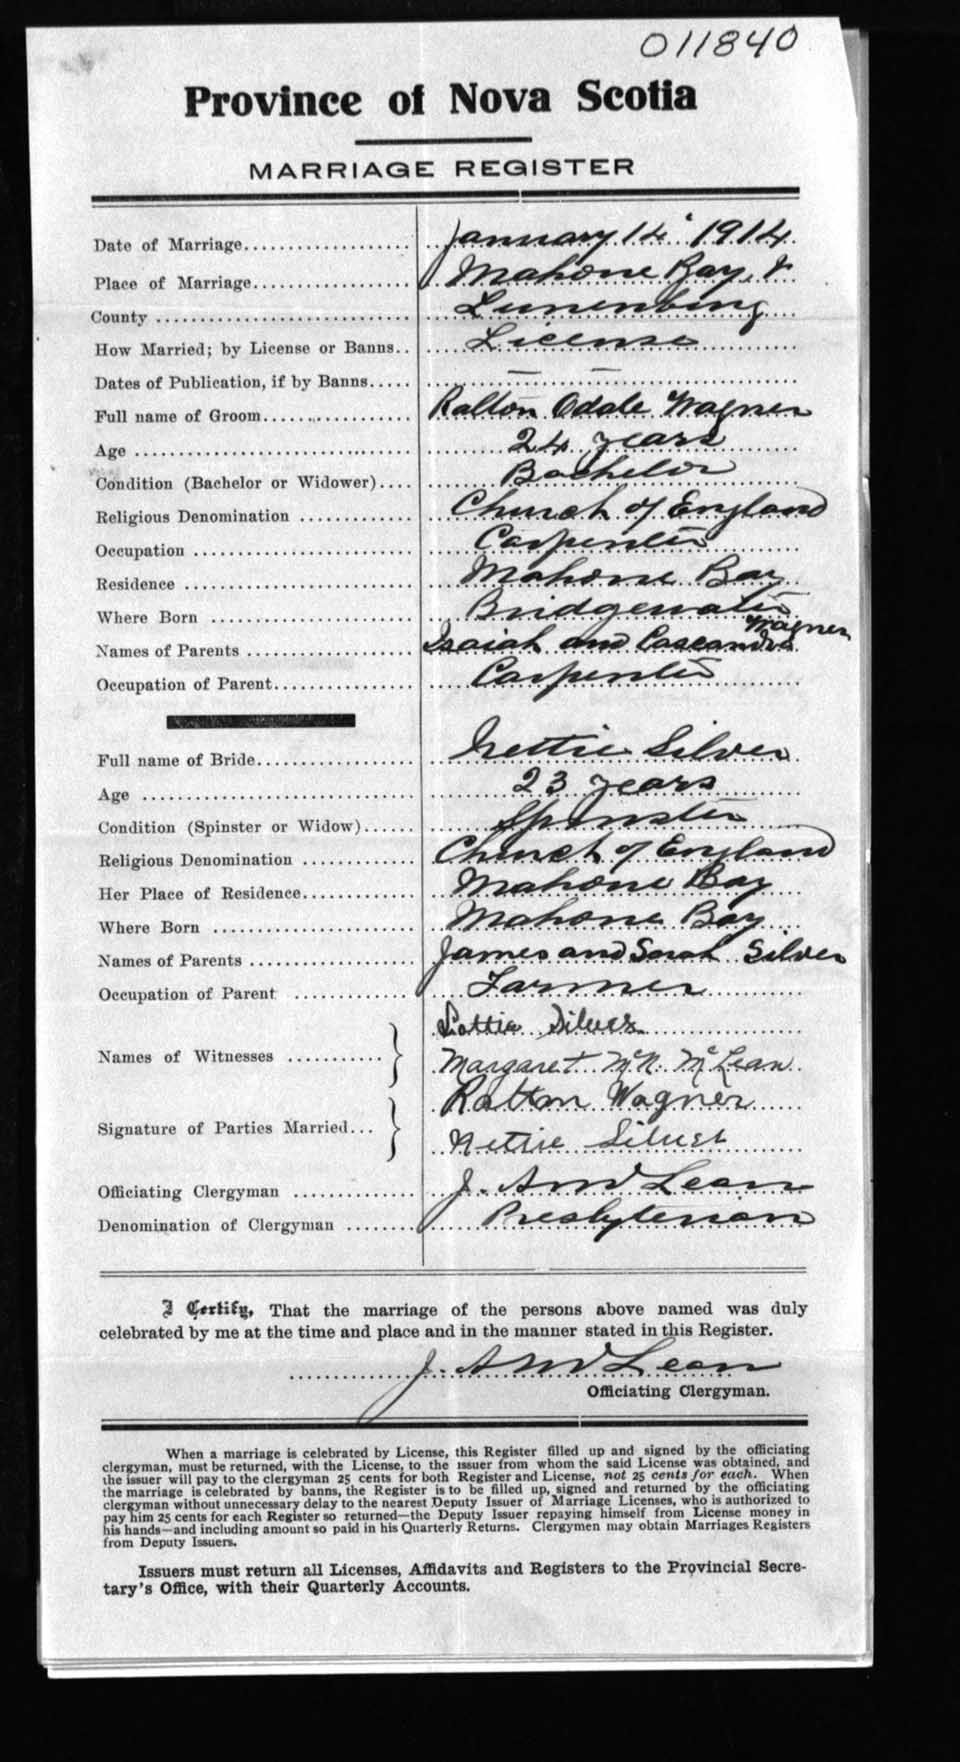 011840
Province of Nova Scotia
MARRIAGE REGISTER
Date of Marriage................... January 14 1914
Place of Marriage.................. Mahone Bay
County ............................ Lunenburg
How Married; by License or Banns.. License
Dates of Publication, if by Banns..... — —
Full name of Groom................. Ralton Odale Wagner
Age ............................... 24 years
Condition (Bachelor or Widower).... Bachelor
Religious Denomination ............ Church of England
Occupation ........................ Carpenter
Residence ......................... Mahone Bay
Where Born ........................ Bridgewater
Names of Parents .................. Isaiah and Caseandra Wagner
Occupation of Parent............... Carpenter
Full name of Bride................. Nettie Silver
Age ............................... 23 years
Condition (Spinster or Widow)...... Spinster
Religious Denomination ............ Church of England
Her Place of Residence............. Mahone Bay
Where Born ........................ Mahone Bay
Names of Parents .................. James and Sarah Silver
Occupation of Parent .............. Farmer
Names of Witnesses ........... } Lottie Silver
Margaret McN. McLean
Signature of Parties Married... } Ralton Wagner
Nettie Silver
Officiating Clergyman .............. J. A. McLean
Denomination of Clergyman ........ Presbyterian
I Certify, That the marriage of the persons above named was duly
celebrated by me at the time and place and in the manner stated in this Register.
J. A. McLean
Officiating Clergyman.
When a marriage is celebrated by License, this Register filled up and signed by the officiating
clergyman, must be returned, with the License, to the issuer from whom the said License was obtained, and
the issuer will pay to the clergyman 25 cents for both Register and License, not 25 cents for each. When
the marriage is celebrated by banns, the Register is to be filled up, signed and returned by the officiating
clergyman without unnecessary delay to the nearest Deputy Issuer of Marriage Licenses, who is authorized to
pay him 25 cents for each Register so returned—the Deputy Issuer repaying himself from License money in
his hands—and including amount so paid in his Quarterly Returns. Clergymen may obtain Marriages Registers
from Deputy Issuers.
Issuers must return all Licenses, Affidavits and Registers to the Provincial Secre-
tary's Office, with their Quarterly Accounts.